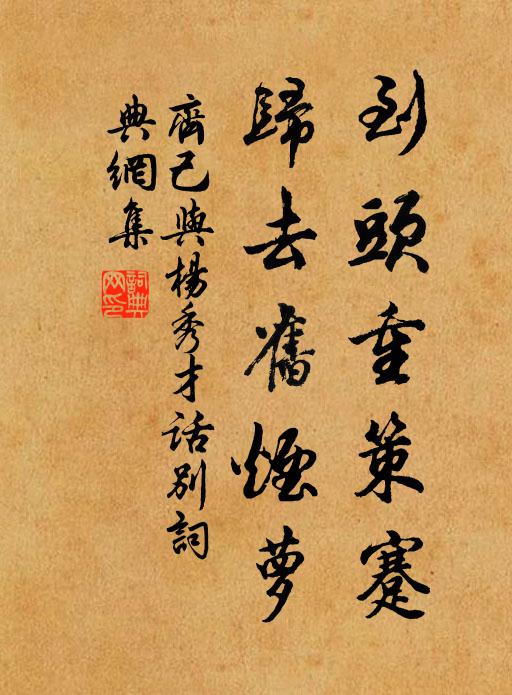 到頭重策蹇
歸去舊煙蘿
齊己與楊秀才話別詞
典網集
詞典網印